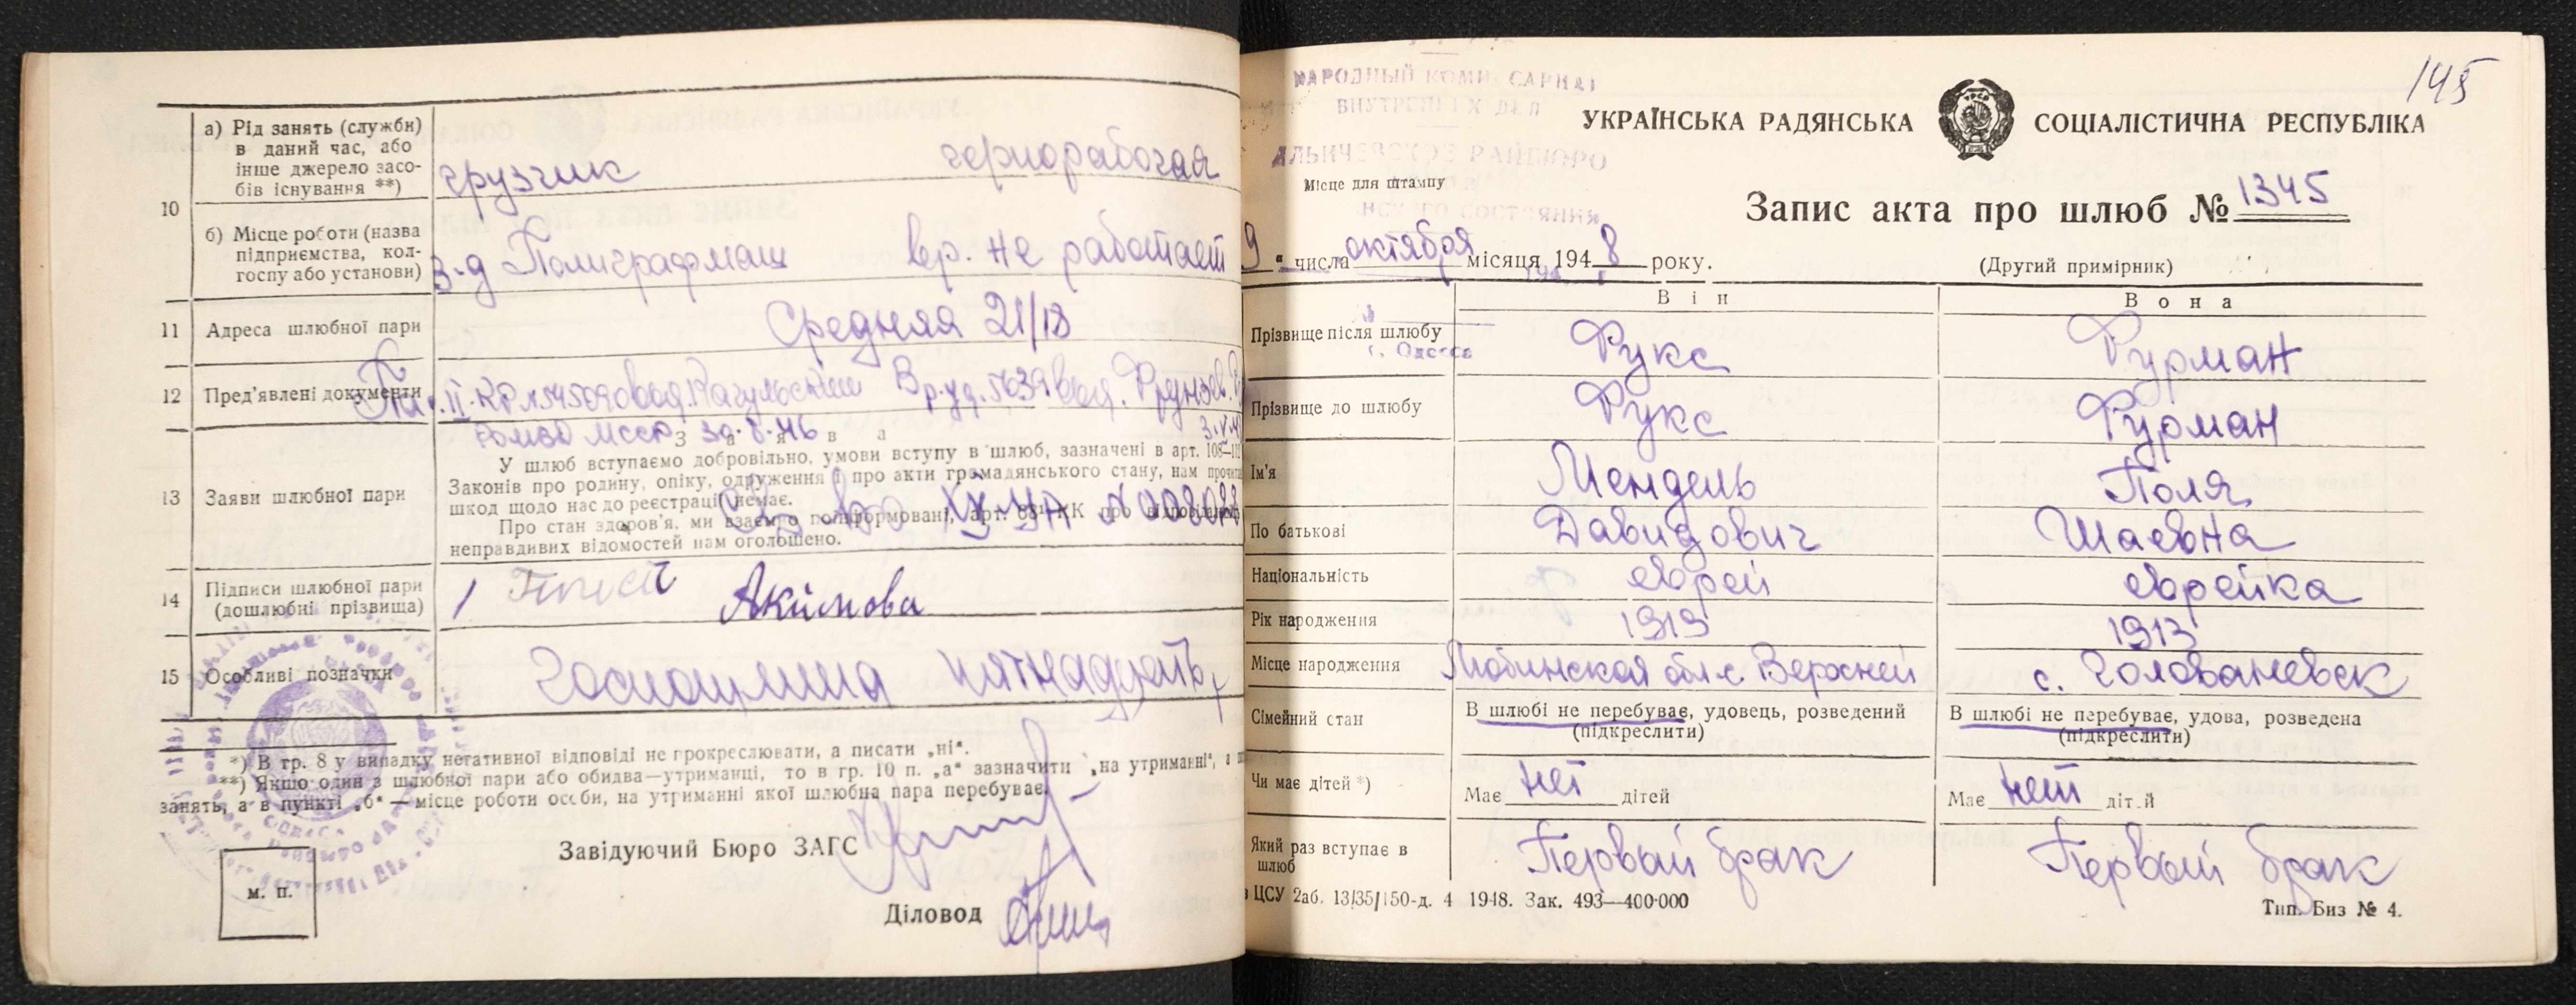 10
а) Рід занять (служби)
в даний час, або
інше джерело засо-
бів існування **)
грузчик
чернорабочая
б) Місце роботи (назва
підприємства, кол-
госпу або установи)
з-д Полиграфмаш
вр. не работает
11
Адреса шлюбної пари
Средняя 21/18
12
Пред'явлені документи
З а я в а
13
Заяви шлюбної пари
У шлюб вступаємо добровільно, умови вступу в шлюб, зазначені в арт. 108
Законів про родину, опіку, одруження і про акти громадянського стану, нам
шкод щодо нас до реєстрації немає.
Про стан здоров'я, ми взаємно поінформовані, арт. КК про
неправдивих відомостей нам оголошено.
14
Підписи шлюбної пари
(дошлюбні прізвища)
Акимова
15
Особливі позначки
Госпошлина пятнадцать
*) В гр. 8 у випадку негативної відповіді не прокреслювати, а писати „ні".
**) Якщо один з шлюбної пари або обидва—утриманці, то в гр. 10 п. „а" зазначити „на утриманні", а
занять, а в пункті „б" — місце роботи особи, на утриманні якої шлюбна пара перебуває.
Завідуючий Бюро ЗАГС
Діловод
м. п.
145
НАРОДНЫЙ КОМИССАРИАТ
ВНУТРЕННИХ ДЕЛ
ИЛЬИЧЕВСКОЕ РАЙБЮРО
Місце для штампу
СОСТОЯНИЯ
г. Одесса
УКРАЇНСЬКА РАДЯНСЬКА СОЦІАЛІСТИЧНА РЕСПУБЛІКА
Запис акта про шлюб № 1345
9 " числа октября місяця 1948 року.
(Другий примірник)
Він
Вона
Прізвище після шлюбу
Фукс
Фурман
Прізвище до шлюбу
Фукс
Фурман
Ім'я
Мендель
Поля
По батькові
Давидович
Шаевна
Національність
еврей
еврейка
Рік народження
1919
1913
Місце народження
обл. с. Верхней
с. Голованевск
Сімейний стан
В шлюбі не перебуває, удовець, розведений
(підкреслити)
В шлюбі не перебуває, удова, розведена
(підкреслити)
Чи має дітей *)
Має нет дітей
Має нет дітей
Який раз вступає в
шлюб
Первый брак
Первый брак
ЦСУ 2аб. 13/35/150-д. 4 1948. Зак. 493—400·000
Тип. Биз № 4.